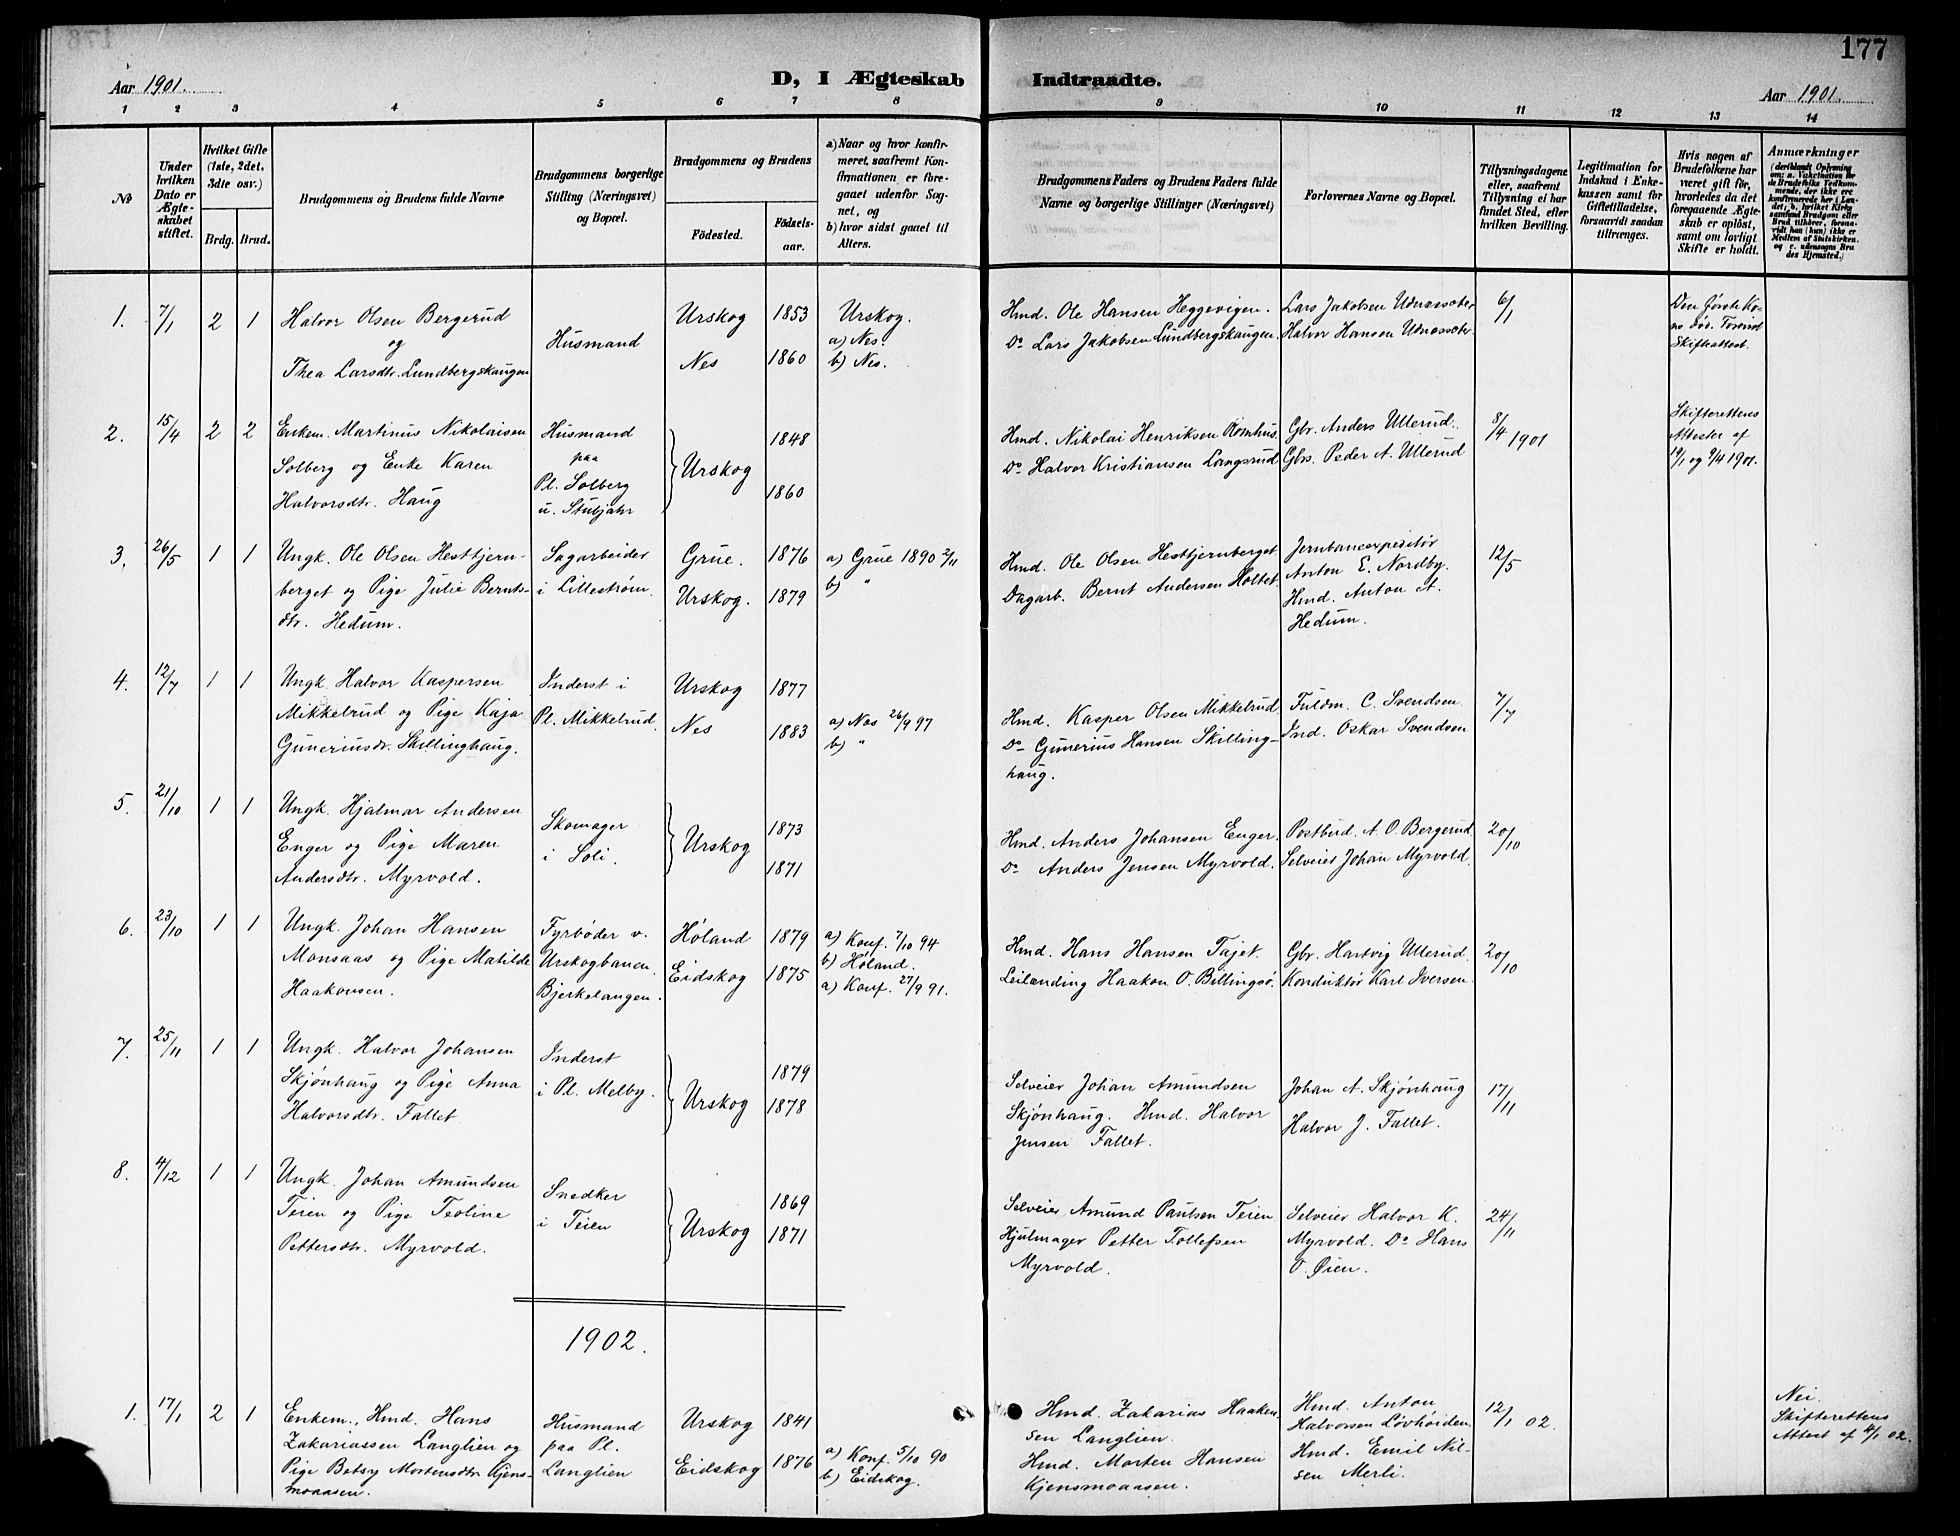 177
Aar 1901.
D, I Ægteskab Indtraadte.
Aar 1901.
1 2 3 4 5 6 7 8 9 10 11 12 13 14
№
Under hvilken Dato er Ægteskabet stiftet.
Hvilket Gifte (1ste, 2det, 3die osv.)
Brdg. Brud.
Brudgommens og Brudens fulde Navne
Brudgommens borgerlige Stilling (Næringsvei) og Bopæl.
Brudgommens og Brudens
Fødested.
Fødselsaar.
a) Naar og hvor konfirmeret, saafremt Konfirmationen er foregaaet udenfor Sognet, og
b) hvor sidst gaaet til Alters.
Brudgommens Faders og Brudens Faders fulde Navne og borgerlige Stillinger (Næringsvei)
Forlovernes Navne og Bopæl.
Tillysningsdagene eller, saafremt Tillysning ei har fundet Sted, efter hvilken Bevilling.
Legitimation for Indskud i Enkekassen samt for Giftetilladelse, forsaavidt saadan tiltrænges.
Hvis nogen af Brudefolkene har været gift før, hvorledes da det foregaaende Ægteskab er opløst, samt om lovligt Skifte er holdt.
Anmærkninger
1. 7/1 2 1
Halvor Olsen Bergerud
og
Thea Larsdtr. Lundbergskaugen
Husmand
Urskog 1853 Urskog.
Nes 1860 a) Nes.
b) Nes.
Hmd. Ole Hansen Heggevigen.
Do Lars Jakobsen Lundbergskaugen.
Lars Jakobsen Udnæssæter
Halvor Hansen Udnæssetr.
6/1
Den første Kone død. Forevist
Skifteattest.
2. 15/4 2 2
Enkem. Martinus Nikolaisen
Solberg og Enke Karen
Halvorsdtr. Haug
Husmand
paa
Pl. Solberg
u. Stubjahr
Urskog
1848
1860
Hmd. Nikolai Henriksen Romhus.
Do Halvor Kristiansen Langsrud
Gbr. Anders Ullerud.
Gbs. Peder A. Ullerud
8/4 1901
Skifterettens
Attester af
19/1 og 9/4 1901.
3. 26/5 1 1
Ungk. Ole Olsen Hesttjern-
berget og Pige Julie Bernts-
dtr. Hedum.
Sagarbeider
i Lillestrøm.
Grue. 1876 a) Grue 1890 2/11
Urskog. 1879 b) "
Hmd. Ole Olsen Hesttjernberget.
Dagarb. Bernt Andersen Holtet.
Jernbaneexpeditør
Anton E. Nordby.
Hmd. Anton A.
Hedum.
12/5
4. 12/7 1 1
Ungk. Halvor Kaspersen
Mikkelrud og Pige Kaja
Guneriusdr. Skillinghaug.
Inderst i
Pl. Mikkelrud.
Urskog 1877
Nes 1883 a) Nes 26/9 97
b) "
Hmd. Kasper Olsen Mikkelrud.
Do Gunerius Hansen Skilling-
haug.
Fuldm. C. Svendsen.
Ind. Oskar Svendsen
7/7
5. 21/10 1 1
Ungk. Hjalmar Andersen
Enger og Pige Maren
Andersdtr. Myrvold.
Skomager
i Soli.
Urskog
1873
1871
Hmd. Anders Johansen Enger.
Do Anders Jensen Myrvold.
Postbud. A. O. Bergerud.
Selveier Johan Myrvold.
20/10
6. 23/10 1 1
Ungk. Johan Hansen
Monsaas og Pige Matilde
Haakonsen.
Fyrbøder v.
Urskogbanen.
Bjerkelangen.
Høland 1879 a) Konf. 7/10 94
b) Høland.
Eidskog 1875 a) Konf. 27/9 91.
Hmd. Hans Hansen Tajet.
Leilending Haakon O. Billingsø.
Gbr. Hartvig Ullerud.
Konduktør Karl Iversen.
20/10
7. 25/11 1 1
Ungk. Halvor Johansen
Skjønhaug og Pige Anna
Halvorsdtr. Fallet
Inderst
i Pl. Melby.
Urskog
1879
1878
Selveier Johan Amundsen
Skjønhaug. Hmd. Halvor
Jensen Fallet.
Johan A. Skjønhaug
Halvor J. Fallet.
17/11
8. 4/12 1 1
Ungk. Johan Amundsen
Teien og Pige Teoline
Pettersdtr. Myrvold.
Snedker
i Teien
Urskog
1869
1871
Selveier Amund Paulsen Teien
Hjulmager Petter Tollefsen
Myrvold.
Selveier Halvor K.
Myrvold. Do Hans
O. Øien.
24/11
1902.
1. 17/1 2 1
Enkem., Hmd. Hans
Zakariassen Langlien og
Pige Betsy Mortensdtr. Kjens-
moaasen.
Husmand
paa Pl.
Langlien
Urskog 1841
Eidskog 1876 a) Konf. 5/10 90
b) Eidskog.
Hmd. Zakarias Haaken-
sen Langlien.
Hmd. Morten Hansen
Kjensmoaasen.
Hmd. Anton
Halvorsen Løvhøiden.
Hmd. Emil Nil-
sen Merli.
12/1 02.
Nei.
Skifterettens
Attest af 4/1 02.